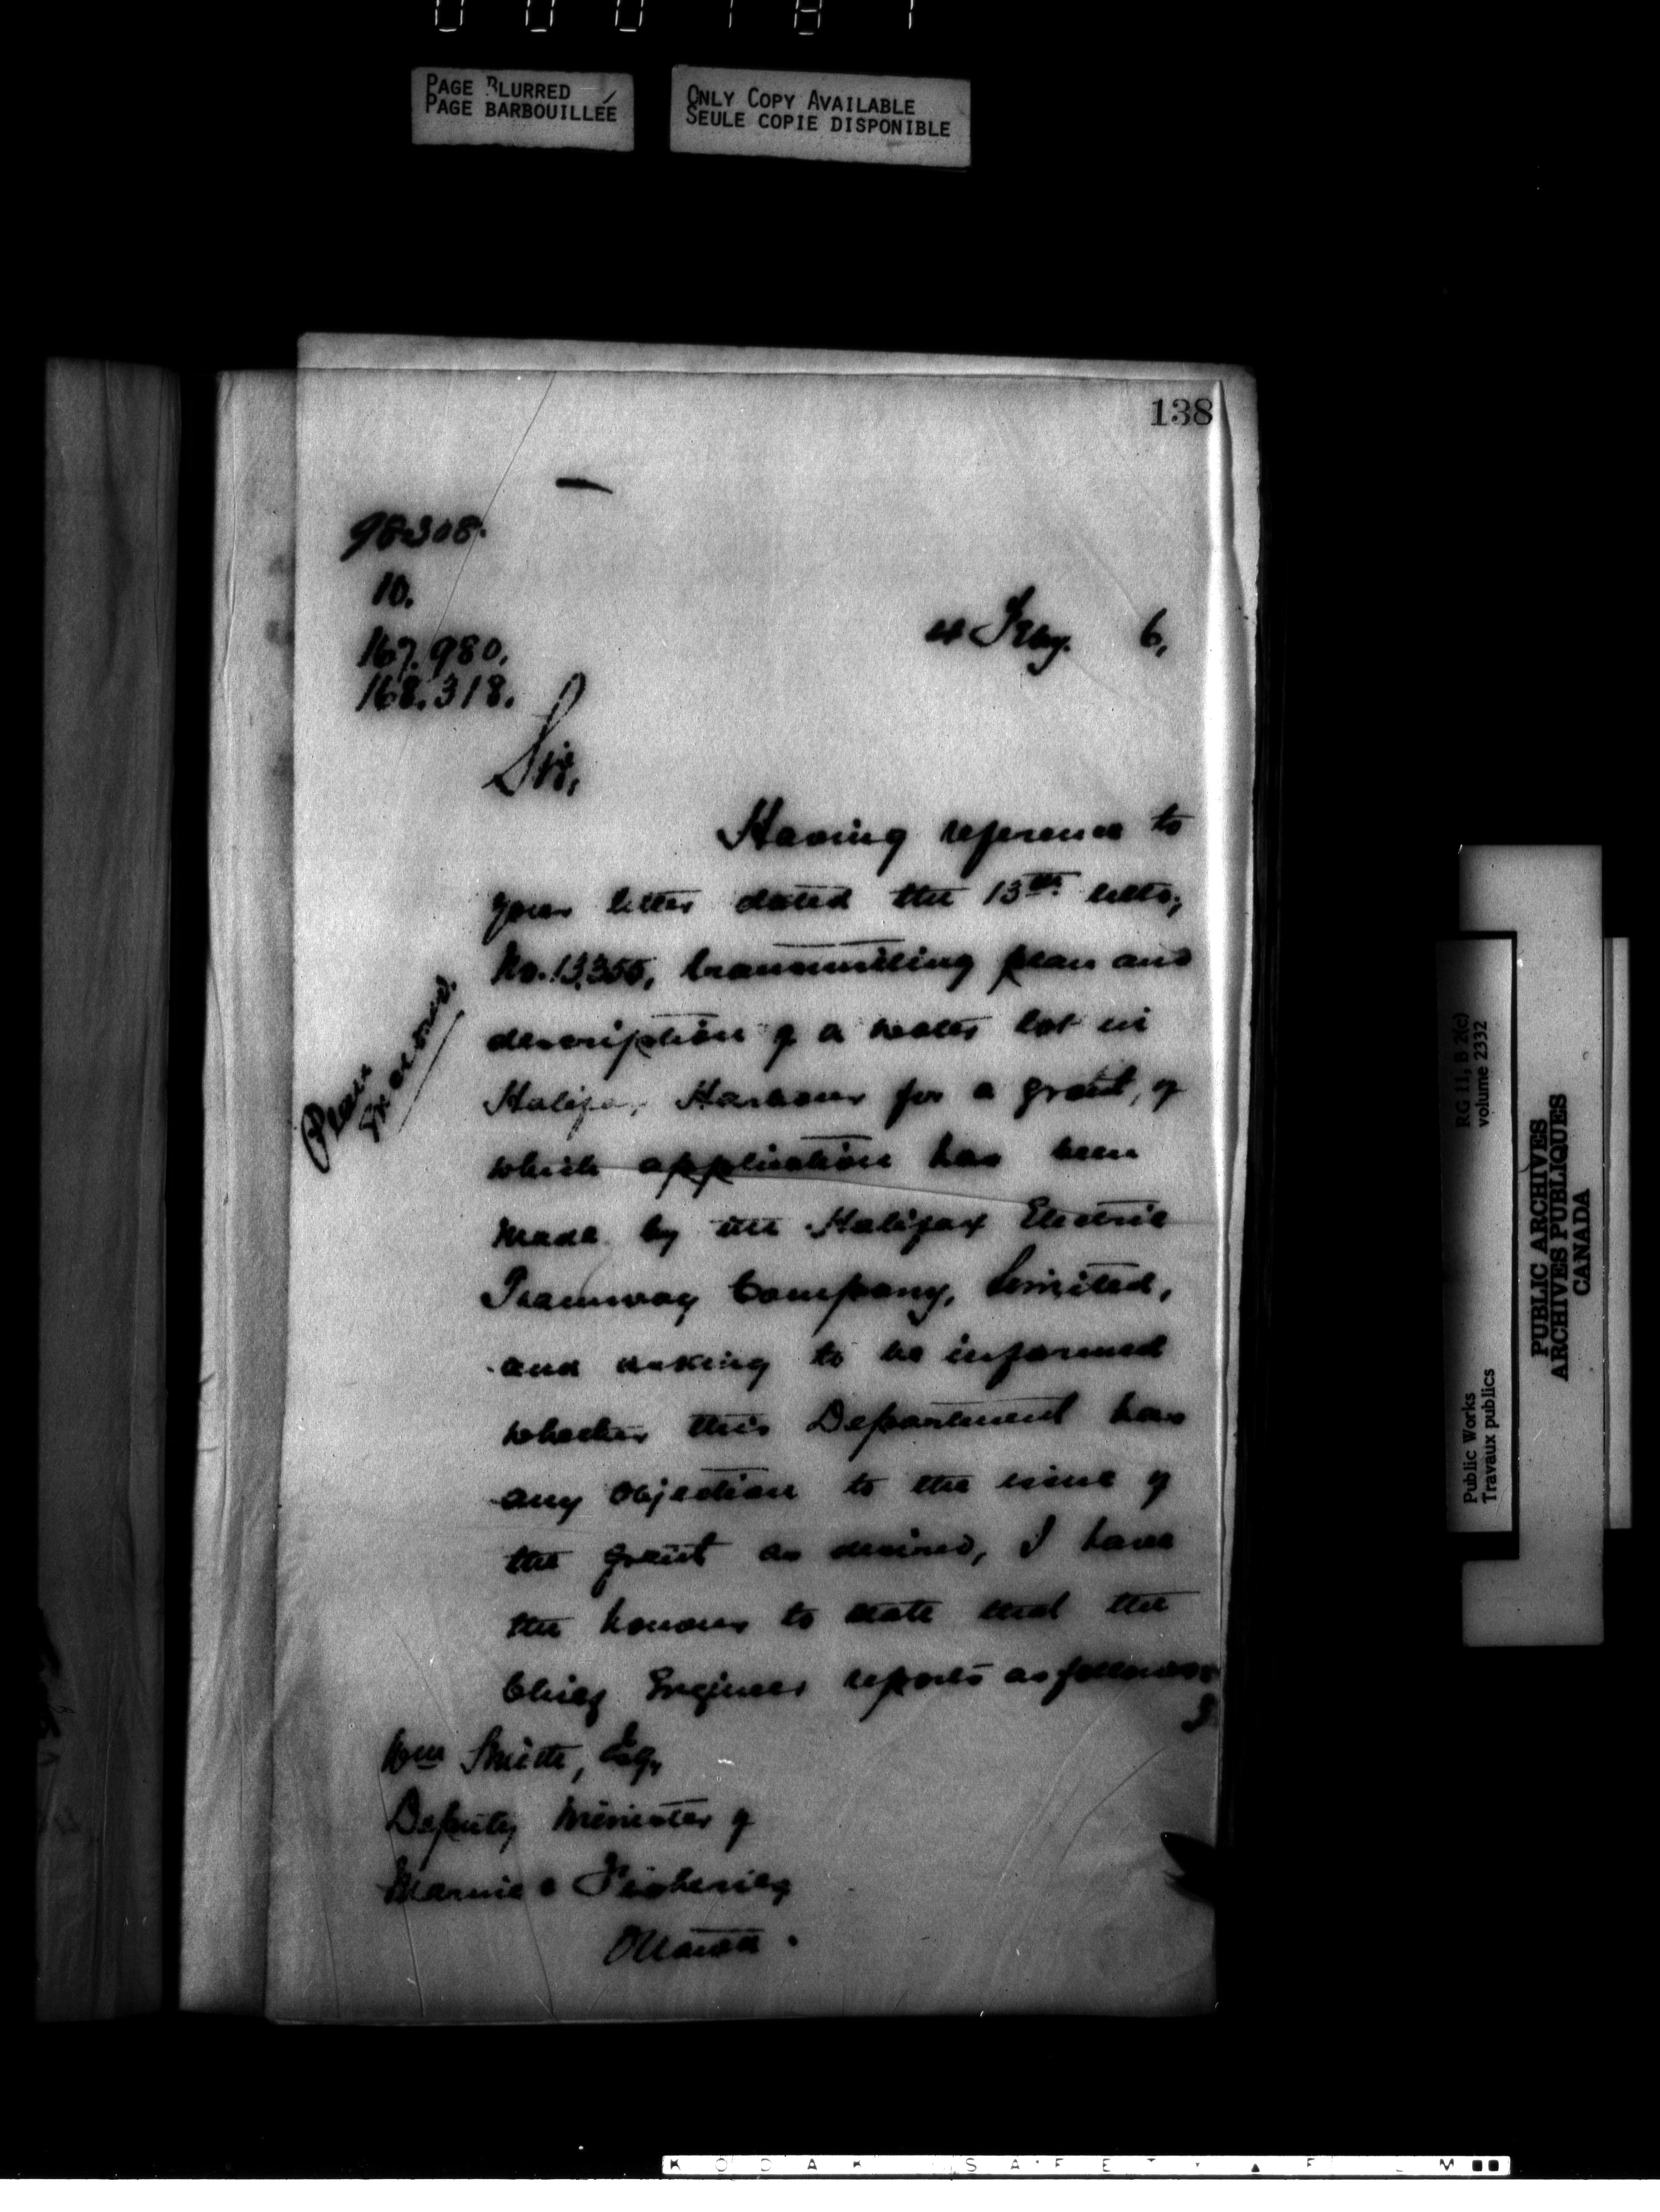 PAGE BLURRED
PAGE BARBOUILLÉE
ONLY COPY AVAILABLE
SEULE COPIE DISPONIBLE
138
98308.
10.
167.980.
168.318.
4 Feby. 6,
Sir,
Having reference to
your letter dated the 13th ulto;
No. 13,355, transmitting plan and
description of a water lot in
Halifax Harbour for a grant, of
which application has been
made by the Halifax Electric
Tramway Company, Limited,
and asking to be informed
whether this Department has
any objection to the issue of
the grant as desired, I have
the honour to state that the
Chief Engineer reports as follows:
Plan
Wm Smith, Esq,
Deputy Minister of
Marine & Fisheries
Ottawa.
RG 11, B 2(c)
volume 2332
Public Works
Travaux publics
PUBLIC ARCHIVES
ARCHIVES PUBLIQUES
CANADA
KODAK SAFETY FILM